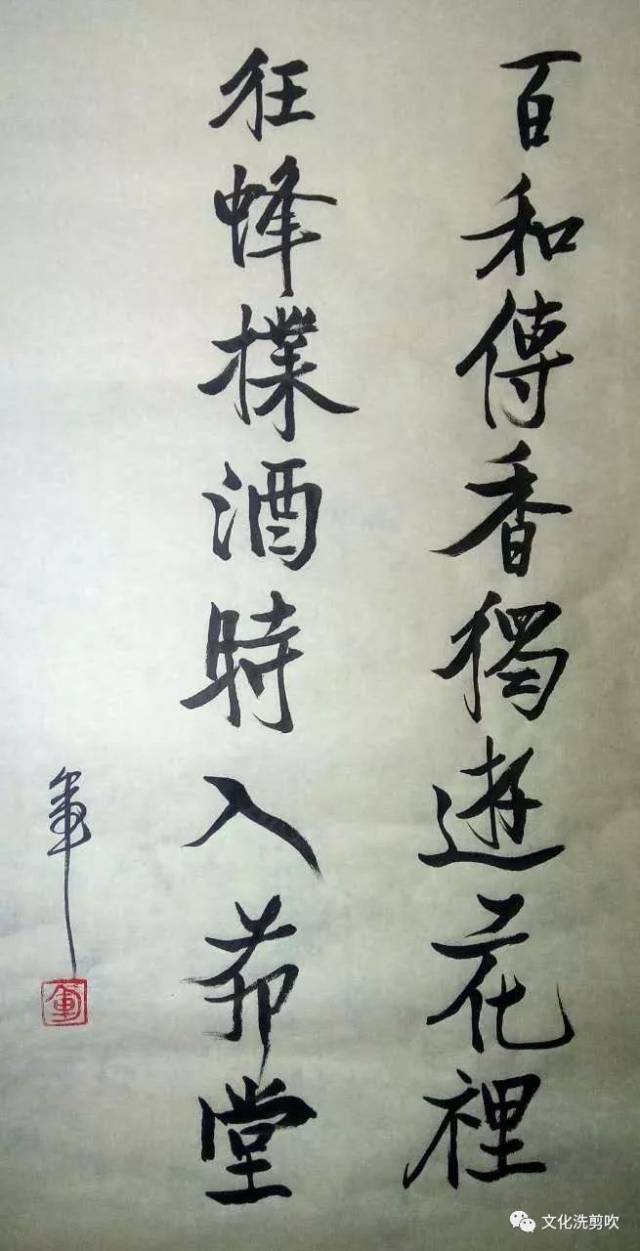 百和傳香獨遊花裡
狂蜂撲酒時入茆堂
文化洗剪吹